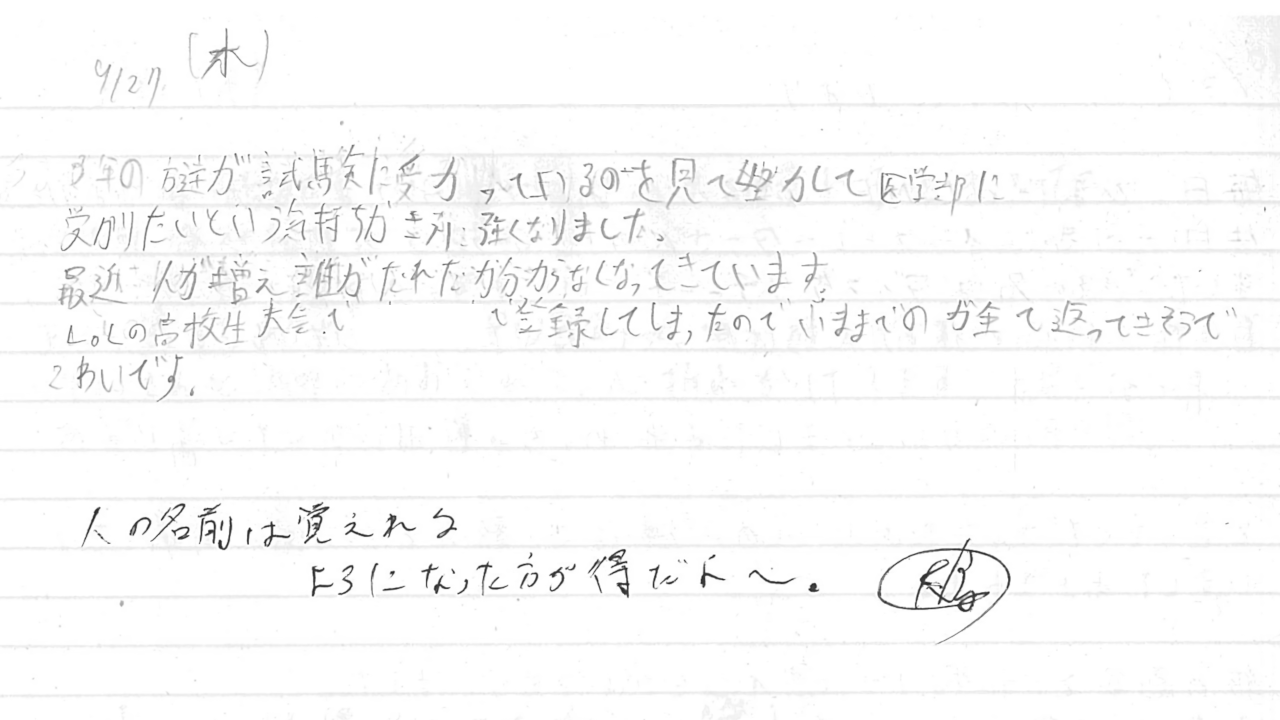 9/27 (水)
3年の方達が試験に受かっているのを見て努力して医学部に
受かりたいという気持ちがさらに強くなりました。
最近人が増え誰がだれだか分からなくなってきています。
LoLの高校生大会で で登録してしまったので いままでの が全て返ってきそうで
こわいです。
人の名前は覚えれる
ようになった方が得だよ〜。